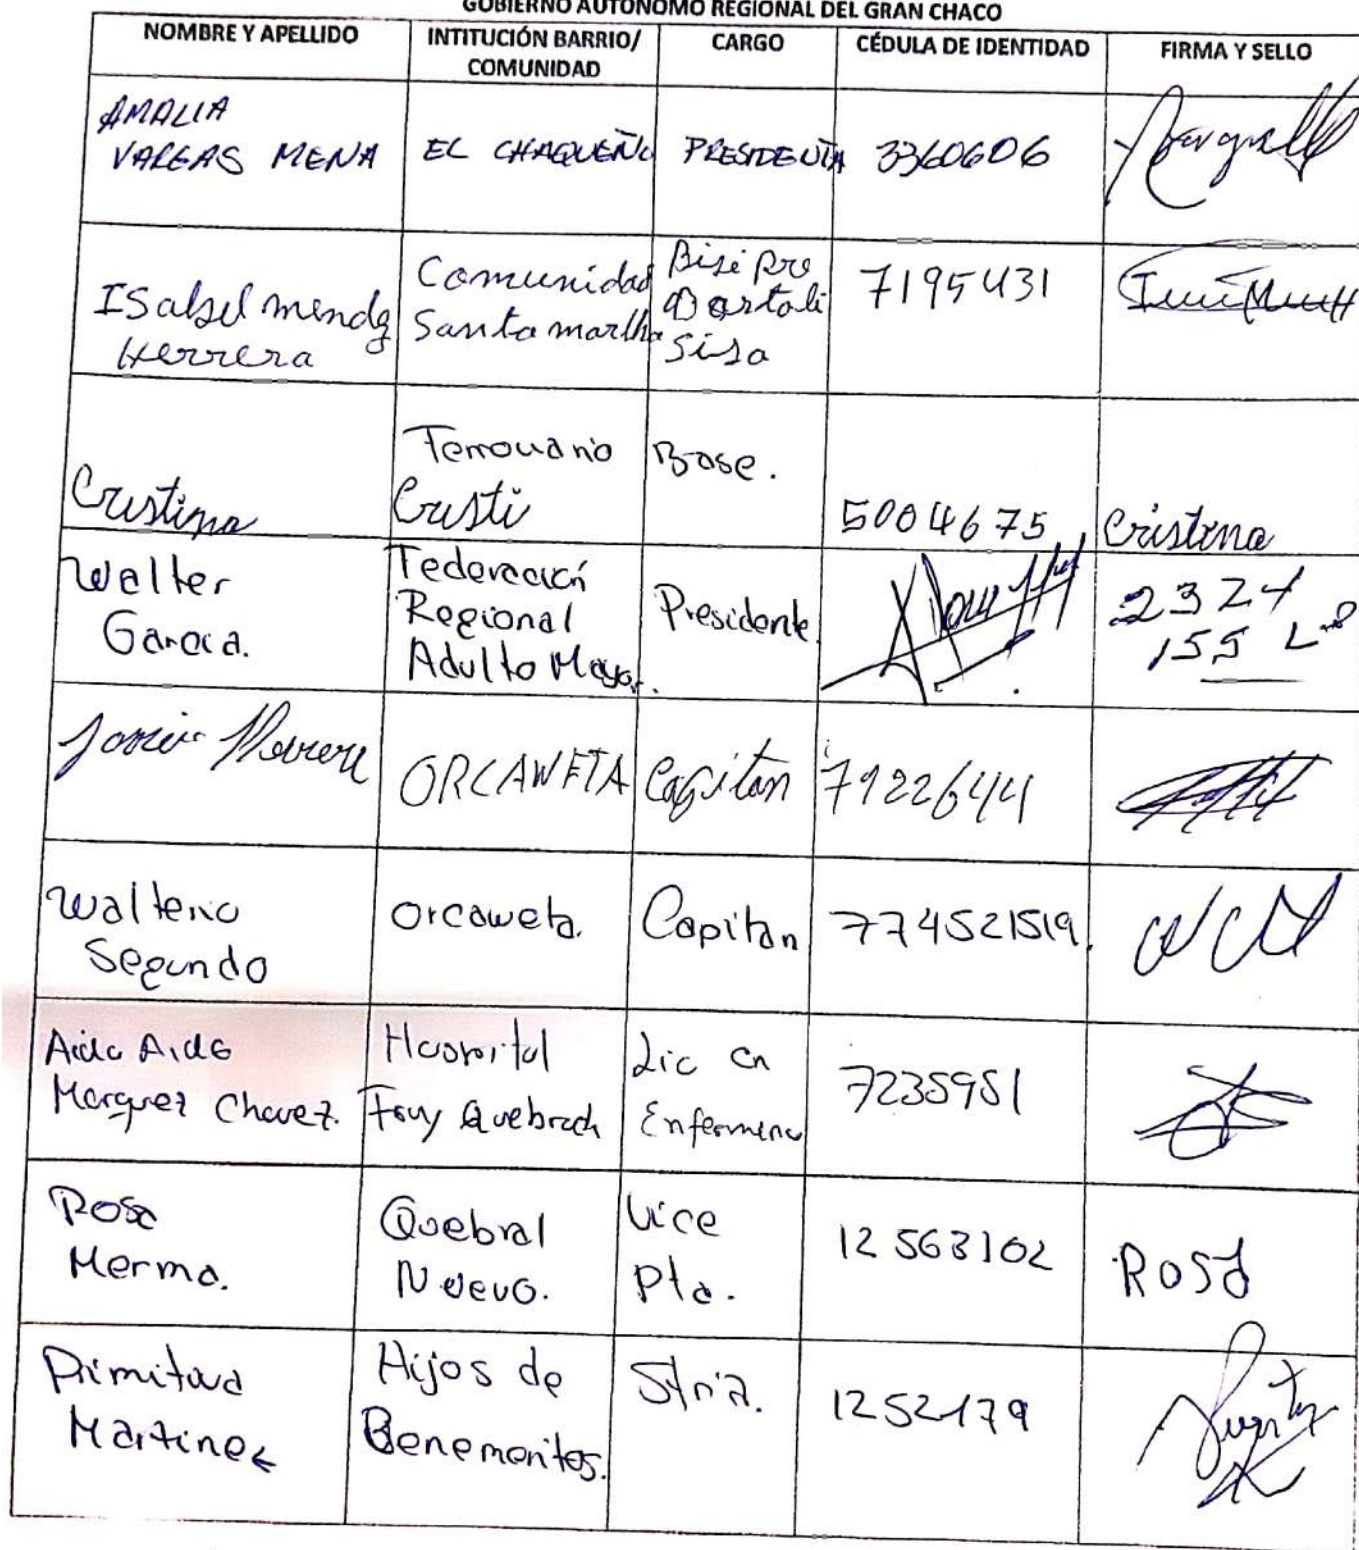 GOBIERNO AUTÓNOMO REGIONAL DEL GRAN CHACO
NOMBRE Y APELLIDO
INTITUCIÓN BARRIO/
COMUNIDAD
CARGO
CÉDULA DE IDENTIDAD
FIRMA Y SELLO
AMALIA
VARGAS MENA
EL CHAQUEÑO
PRESIDENTA
3360606
Isabel mendez
Herrera
Comunidad
Santa martha
Bise pre
Sisa
7195431
Cristina
Cristi
Base.
5004675
Cristina
Walter
Garcia.
Federación
Regional
Adulto Mayor.
Presidente.
2324
155
ORCAWETA
Capitan
7122644
Walterio
Segundo
Orcaweta.
Capitan
774521519.
Aida Aide
Marquez Chavez.
Hospital
Fray Quebrach
Lic en
Enfermeria
7235951
Rosa
Merma.
Quebral
Nuevo.
Vice
Pta.
12563102
Rosa
Primitiva
Martinez
Hijos de
Benemeritos.
Stria.
1252179